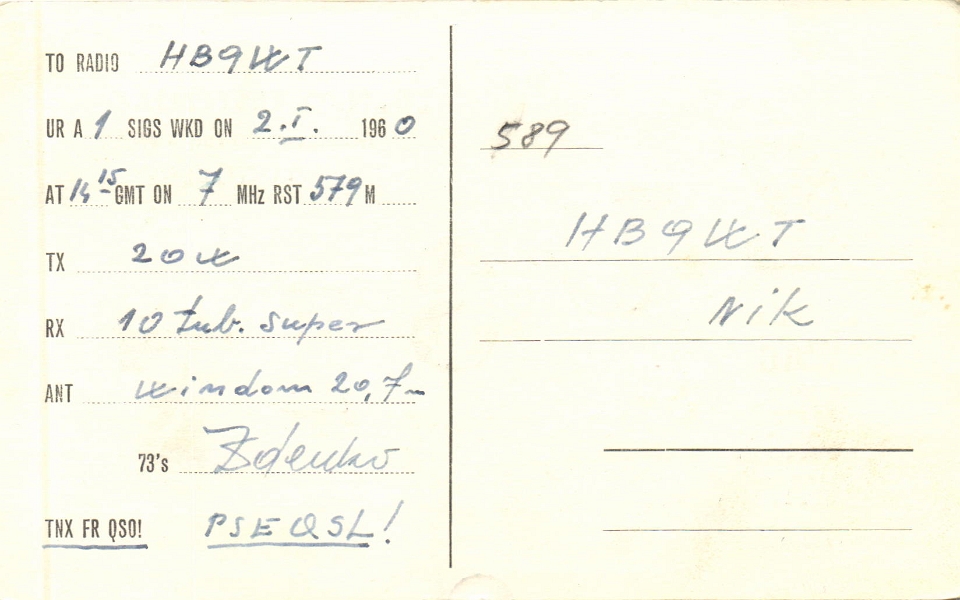 TO RADIO HB9WT
UR A 1 SIGS WKD ON 2.I. 1960
AT 14 15 GMT ON 7 MHz RST 579 M
TX 20 W
RX 10 tub. super
ANT Windom 20,7 m
73's Zdenko
TNX FR QSO! PSE QSL!
589
HB9WT
Nik